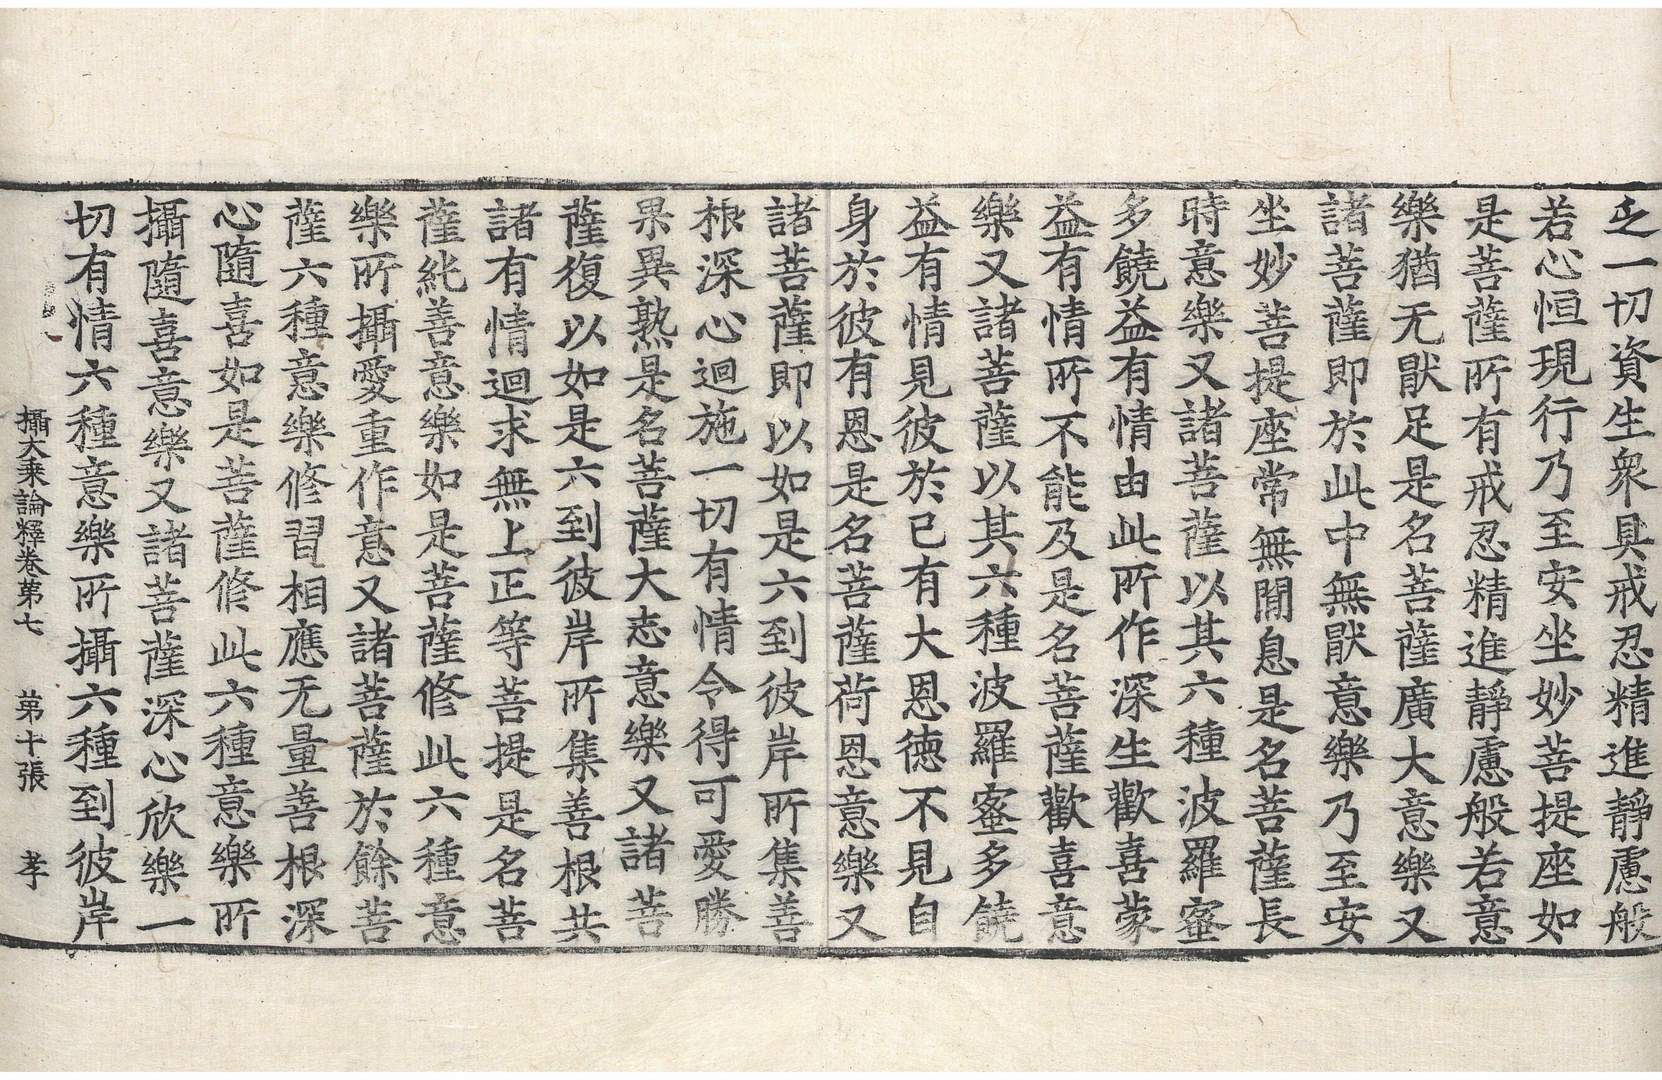 乏一切資生衆具戒忍精進靜慮般
若心恒現行乃至安坐妙菩提座如
是菩薩所有戒忍精進靜慮般若意
樂猶无猒足是名菩薩廣大意樂又
諸菩薩即於此中無猒意樂乃至安
坐妙菩提座常無閒息是名菩薩長
時意樂又諸菩薩以其六種波羅蜜
多饒益有情由此所作深生歡喜蒙
益有情所不能及是名菩薩歡喜意
樂又諸菩薩以其六種波羅蜜多饒
益有情見彼於已有大恩德不見自
身於彼有恩是名菩薩荷恩意樂又
諸菩薩即以如是六到彼岸所集善
根深心迴施一切有情令得可愛勝
果異熟是名菩薩大志意樂又諸菩
薩復以如是六到彼岸所集善根共
諸有情迴求無上正等菩提是名菩
薩純善意樂如是菩薩修此六種意
樂所攝愛重作意又諸菩薩於餘菩
薩六種意樂修習相應无量善根深
心隨喜如是菩薩修此六種意樂所
攝隨喜意樂又諸菩薩深心欣樂一
切有情六種意樂所攝六種到彼岸
攝大乘論釋卷第七 第十張 孝